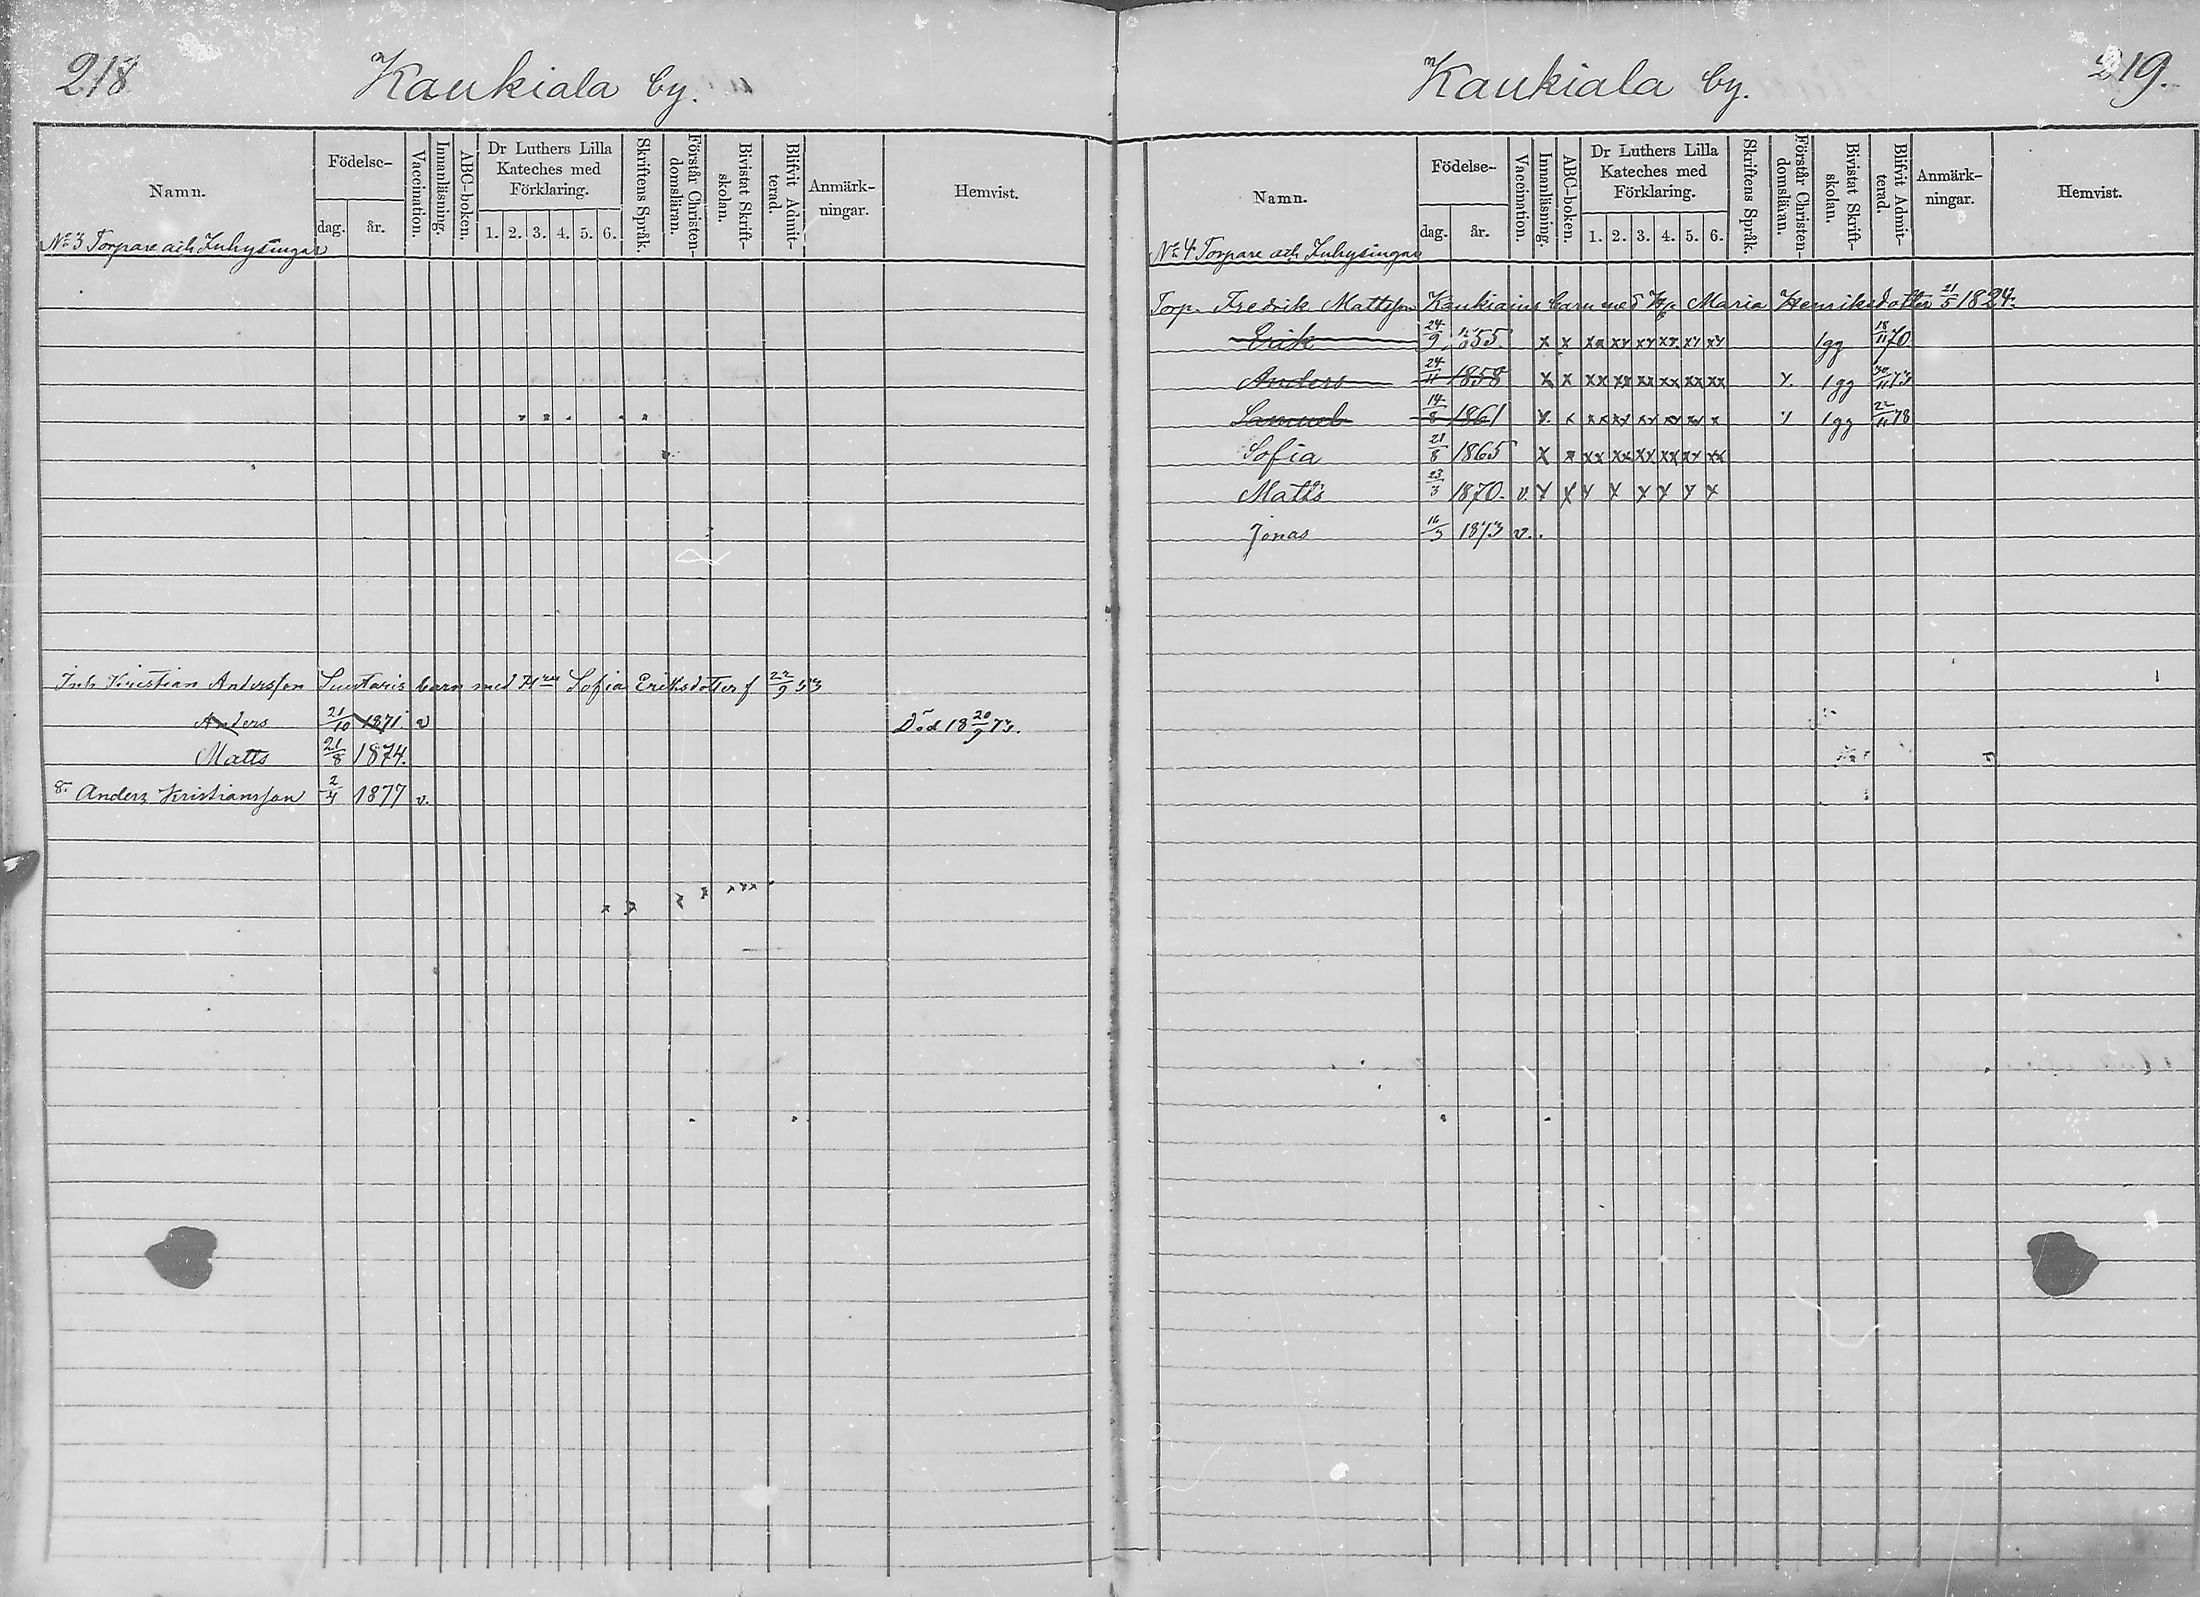 218
Kaukiala by.
Namn. Födelse- dag. år. Vaccination. Innanläsning. ABC-boken. Dr Luthers Lilla Kateches med Förklaring. 1. 2. 3. 4. 5. 6. Skriftens Språk. Förstår Christen-domsläran. Bivistat Skrift-skolan. Blifvit Admit-terad. Anmärk-ningar. Hemvist.
No 3 Torpare och Inhysingar
Inh Kristian Andersson Suutaris barn med H Sofia Eriksdotter f 22/9 53
Anders 21/10 1871. v Död 18 20/9 73.
Matts 21/8 1874.
Anders Kristiansson 2/4 1877 v.
Kaukiala by.
219.
Namn. Födelse- dag. år. Vaccination. Innanläsning. ABC-boken. Dr Luthers Lilla Kateches med Förklaring. 1. 2. 3. 4. 5. 6. Skriftens Språk. Förstår Christen-domsläran. Bivistat Skrift-skolan. Blifvit Admit-terad. Anmärk-ningar. Hemvist.
No 4 Torpare och Inhysingar
Torp. Fredrik Mattsson Kaukiains barn med Maria Henriksdotter 21/5 1824.
Erik 24/9 55. x x xx xx xx xx xx xx 1gg 18/11 70.
Anders 24/11 1858 x x xx xx xx xx xx xx x. 1gg 30/11 73
Samuel 14/8 1861 x. x xx xx xx xx xx x x 1gg 22/11 78
Sofia 21/8 1865 x x xx xx xx xx xx xx
Matts 23/3 1870. v x x x x x x x x
Jonas 16/3 1873 v.